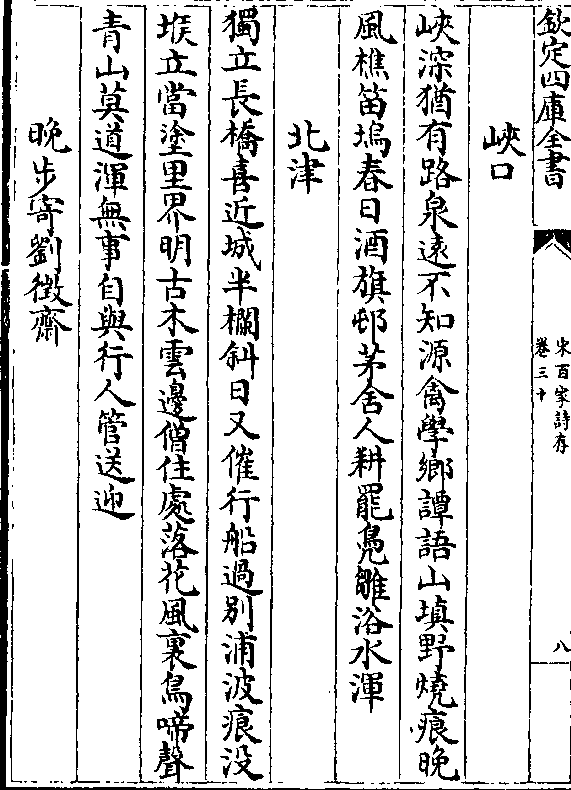 欽定四庫全書
宋百家詩存
卷三十
八
峽口
峽深猶有路泉遠不知源禽學鄉譚語山填野燒痕晚
風樵笛塢春日酒旗邨茅舍人耕罷鳧雛浴水渾
北津
獨立長橋喜近城半欄斜日又催行船過別浦波痕没
堠立當塗里界明古木雲邊僧住處落花風裏鳥啼聲
青山莫道渾無事自與行人管送迎
晚步寄劉徵齋